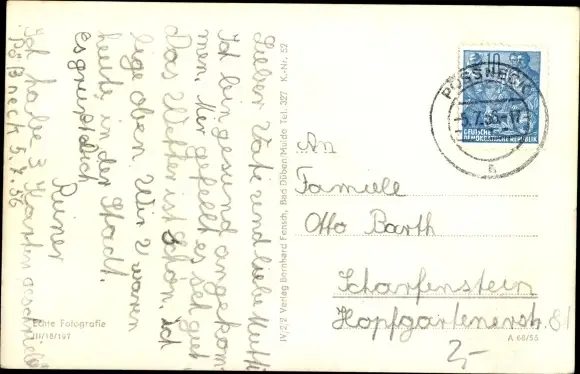 Lieber Vati und liebe Mutti
Ich bin gesund angekom
men. Hier gefällt es seh gut.
Das Wetter ist schön. Ich
lege oben. Wir waren
heute in der Stadt.
Es grüßt Dich
Reiner
Ich habe 3 Karten geschrieben
Pößneck 5.7.56
Echte Fotografie
III/18/197
IV/2/2 Verlag Bernhard Fensch, Bad Düben/Mulde Tel. 327 K-Nr. 52
10
PÖSSNECK
5.7.56-17
DEUTSCHE
DEMOKRATISCHE REPUBLIK
a
An
Familie
Otto Barth
Scharfenstein
Hopfgartenerstr. 81
A 66/55
2,-